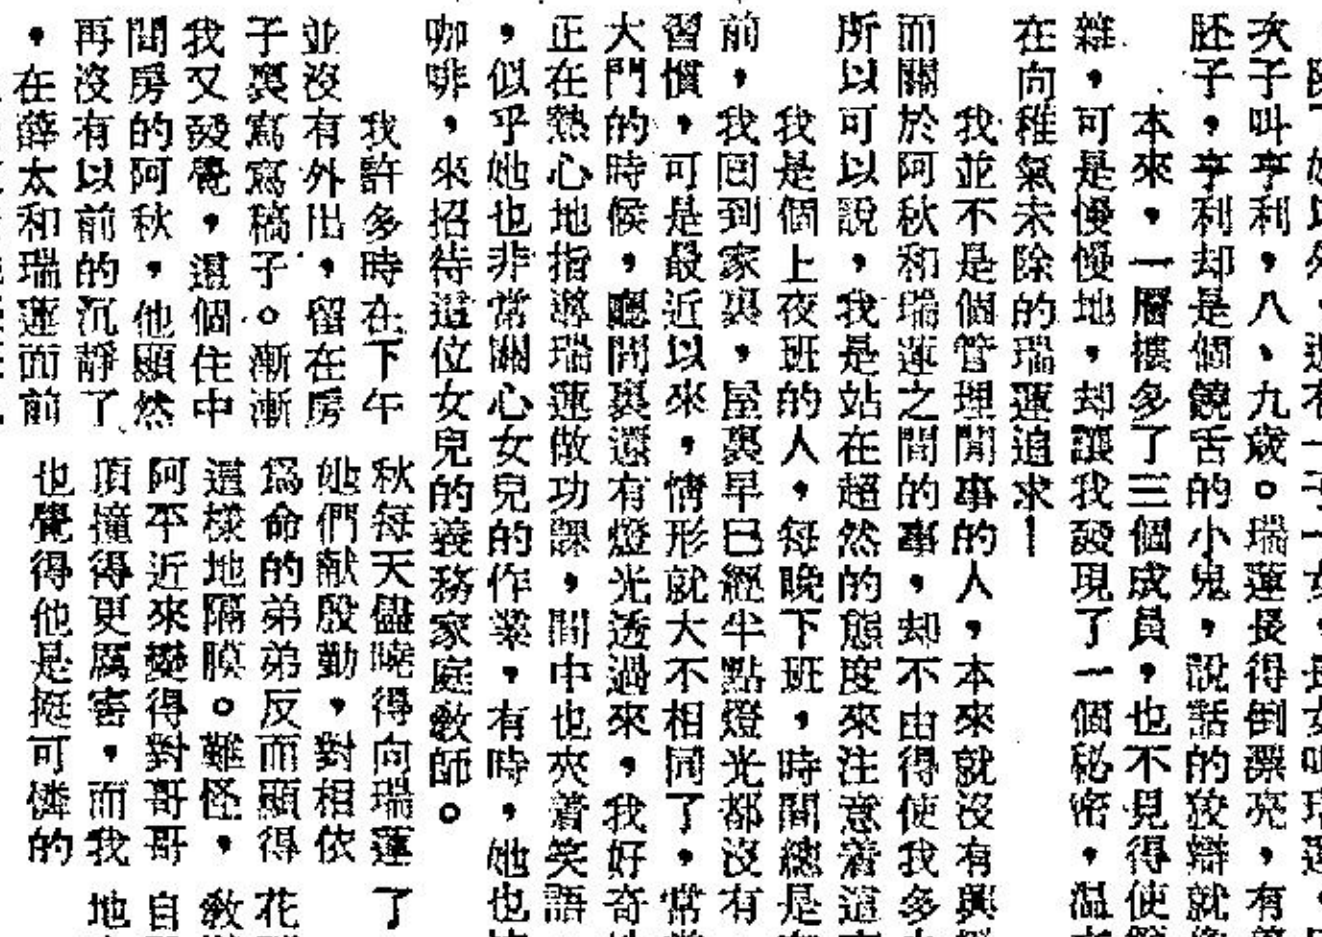 次子叫亨利，八、九歲。瑞蓮長得倒漂亮，有
胚子，亨利却是個饒舌的小鬼，說話的狡辯就
本來，一層樓多了三個成員，也不見得使
雜，可是慢慢地，却讓我發現了一個秘密，温
在向稚氣未除的瑞蓮追求！
我並不是個管理閒事的人，本來就沒有興
而關於阿秋和瑞蓮之間的事，却不由得使我多
所以可以說，我是站在超然的態度來注意着這
我是個上夜班的人，每晚下班，時間總是
前，我回到家裏，屋裏早已經半點燈光都沒有
習慣，可是最近以來，情形就大不相同了，常
大門的時候，廳間裏還有燈光透過來，我好奇
正在熱心地指導瑞蓮做功課，間中也夾着笑語
，似乎她也非常關心女兒的作業，有時，她也
咖啡，來招待這位女兒的義務家庭教師。
我許多時在下午
並沒有外出，留在房
子裏寫寫稿子。漸漸
我又發覺，這個住中
間房的阿秋，他顯然
再沒有以前的沉靜了
，在薛太和瑞蓮面前
秋每天儘曉得向瑞蓮
她們献殷勤，對相依
爲命的弟弟反而顯得
這樣地隔膜。難怪，
阿平近來變得對哥哥
頂撞得更厲害，而我
也覺得他是挺可憐的
了
花
教
自
地